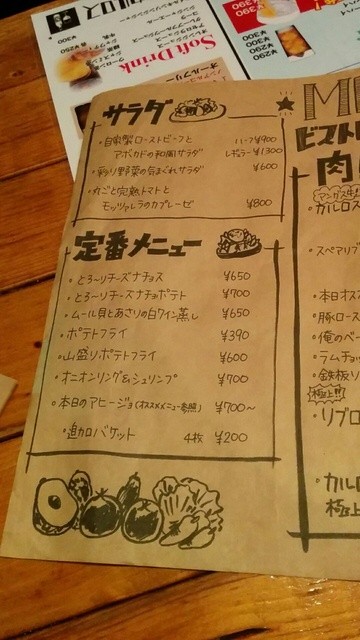 サラダ
・自家製ローストビーフと
アボカドの和風サラダ
ハーフ¥900
レギュラー¥1300
・彩り野菜の気まぐれサラダ ¥600
・丸ごと完熟トマトと
モッツァレラのカプレーゼ ¥800
定番メニュー
・とろ〜りチーズナチョス ¥650
・とろ〜りチーズナチョポテト ¥700
・ムール貝とあさりの白ワイン蒸し ¥650
・ポテトフライ ¥390
・山盛りポテトフライ ¥600
・オニオンリング&シュリンプ ¥700
・本日のアヒージョ(オススメメニュー参照) ¥700〜
・追加バケット 4枚 ¥200
ビストロ
肉
カルロス
・スペアリブ
本日オス
・豚ロース
・俺のベー
・ラムチョッ
・鉄板リ
極上!!
・リブロ
・カルロ
極上
Soft Drink
オールフリー
¥300
¥250
¥390
¥300
¥290
¥290